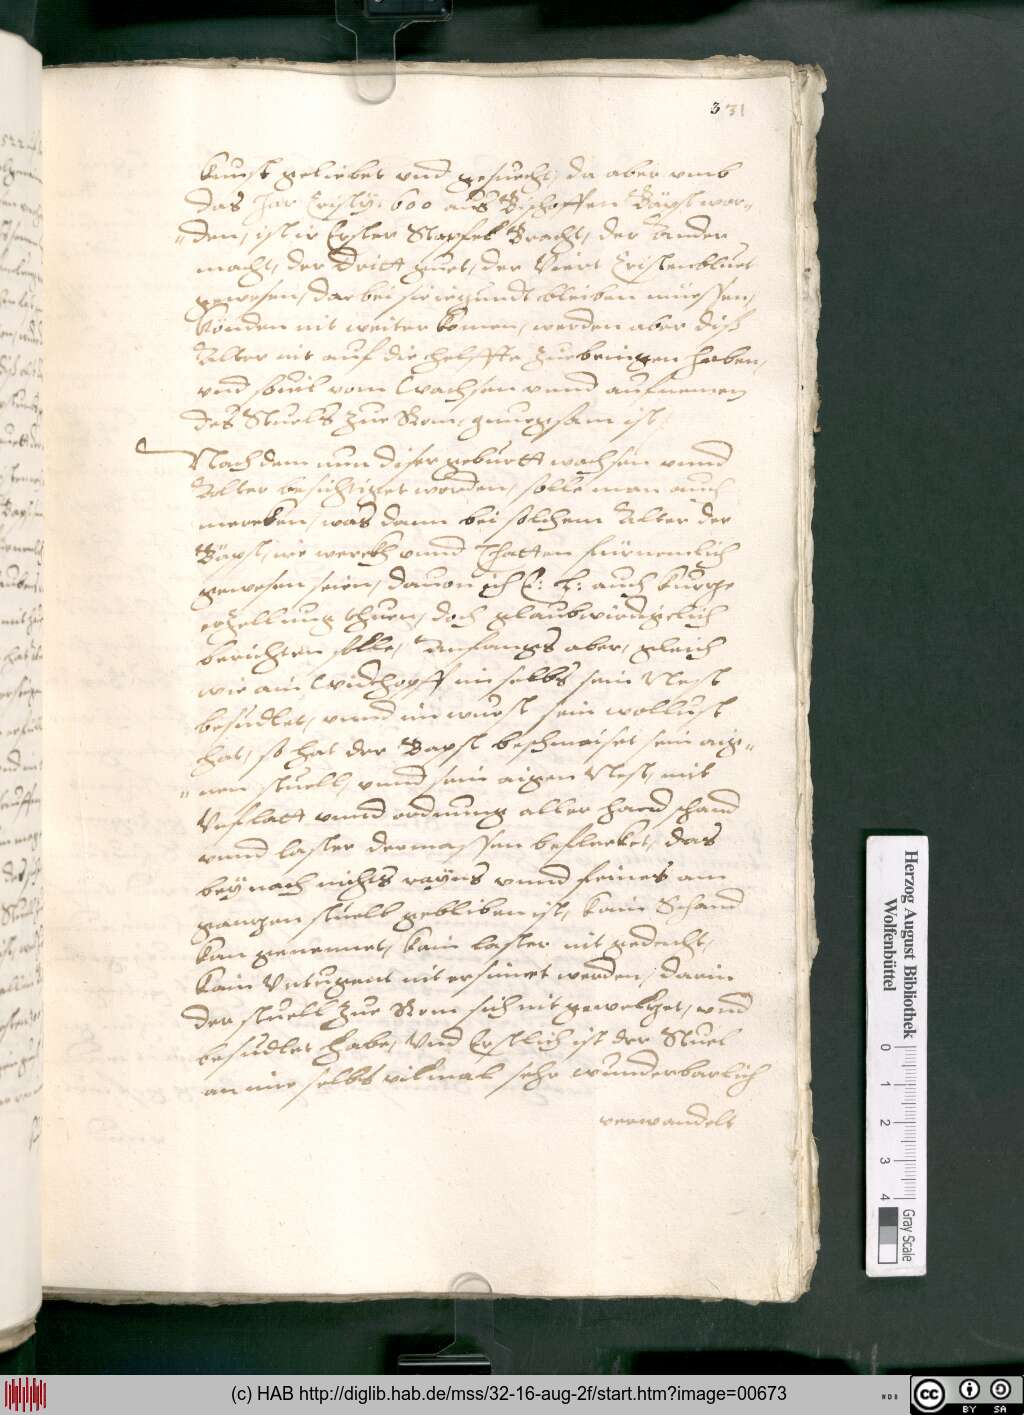 331
kunst geliebet vnd gesucht, da aber vmb
das Jar Cristÿ. 600 aus Bischoffen Bäpst wor=
=den, ist ir Erster Stapfel Bracht, der Ander
macht, der Dritt guet, der Viert Cristenbluet
gewesen, darbei sie iezundt bleiben müessen,
Könden nit weiter komen, werden aber diß
Alter nit auf die helffte zuebringen haben,
vnd souil vom Wachsen vnnd aufnemen
des Stuels zue Rom, gnuegsam ist.
Nachdem nun diser geburtt wachsen vnnd
Alter besichtiget worden, solle man auch
mercken, was dann bei solchem Alter der
Bäpst, ire werckh vnnd Thatten fürnemlich
gewesen seien, dauon ich E: L: auch kurze
erzellung thuen, doch glaubwirdigelich
berichten solle, Anfangs aber, gleich
wie ain Widhopff im selbs sein Nest
besudlet, vnnd im wuest sein wollust
hat, so hat der Bapst beschmeiset sein aig=
=nen stuell, vnnd sein aigen Nest, mit
Vnflatt vnnd ordnung aller hand schand
vnnd laster dermassen beflecket, das
beÿ nach nichts raÿns vnnd feines am
ganzen stuell gebliben ist, kain Schand
kan genennet, kain laster nit gedacht,
kain Vntugent nit ersinnet werden, darin
der stuell zue Rom sich nit gewelzet, vnd
besudlet habe, Vnd Erstlich ist der Stuel
an ime selbs vilmal sehr wunderbarlich
verwandelt
Herzog August Bibliothek
Wolfenbüttel
0 1 2 3 4
Gray Scale
(c) HAB http://diglib.hab.de/mss/32-16-aug-2f/start.htm?image=00673
WDB
cc BY SA